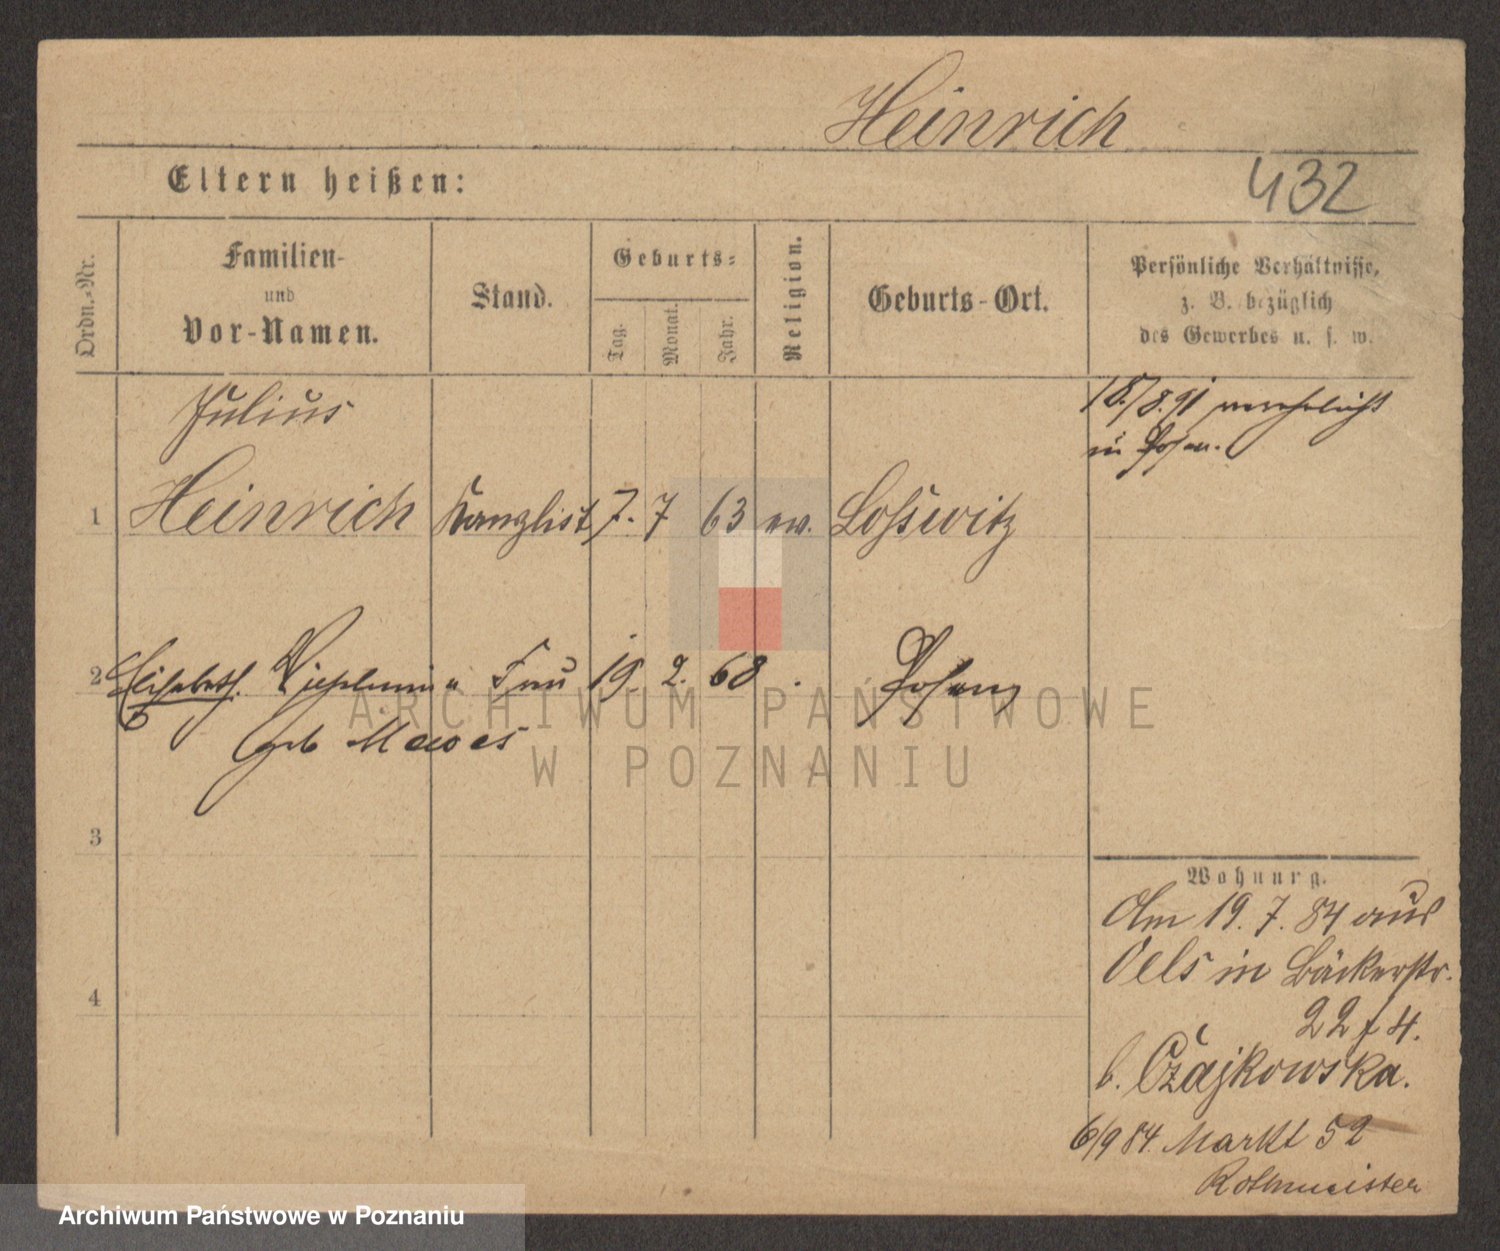 Heinrich
432
Eltern heißen:
Ordn.-Nr.
Familien-
und
Vor-Namen.
Stand.
Geburts-
Tag.
Monat.
Jahr.
Religion.
Geburts-Ort.
Persönliche Verhältnisse,
z. B. bezüglich
des Gewerbes u. s. w.
Julius
1 Heinrich Kanzlist 7. 7 63 ev. Losswitz
18./8.91 verehelicht
in Posen.
2 Elisabeth Wilhelmine Frau 19. 2. 68 Posen
geb Mewes
3
4
Wohnung.
Am 19. 7. 84 aus
Oels in Bäckerstr.
22 f 4.
b. Czajkowska.
6/9 84. Markt 52
Rothmeister
ARCHIWUM PAŃSTWOWE
W POZNANIU
Archiwum Państwowe w Poznaniu